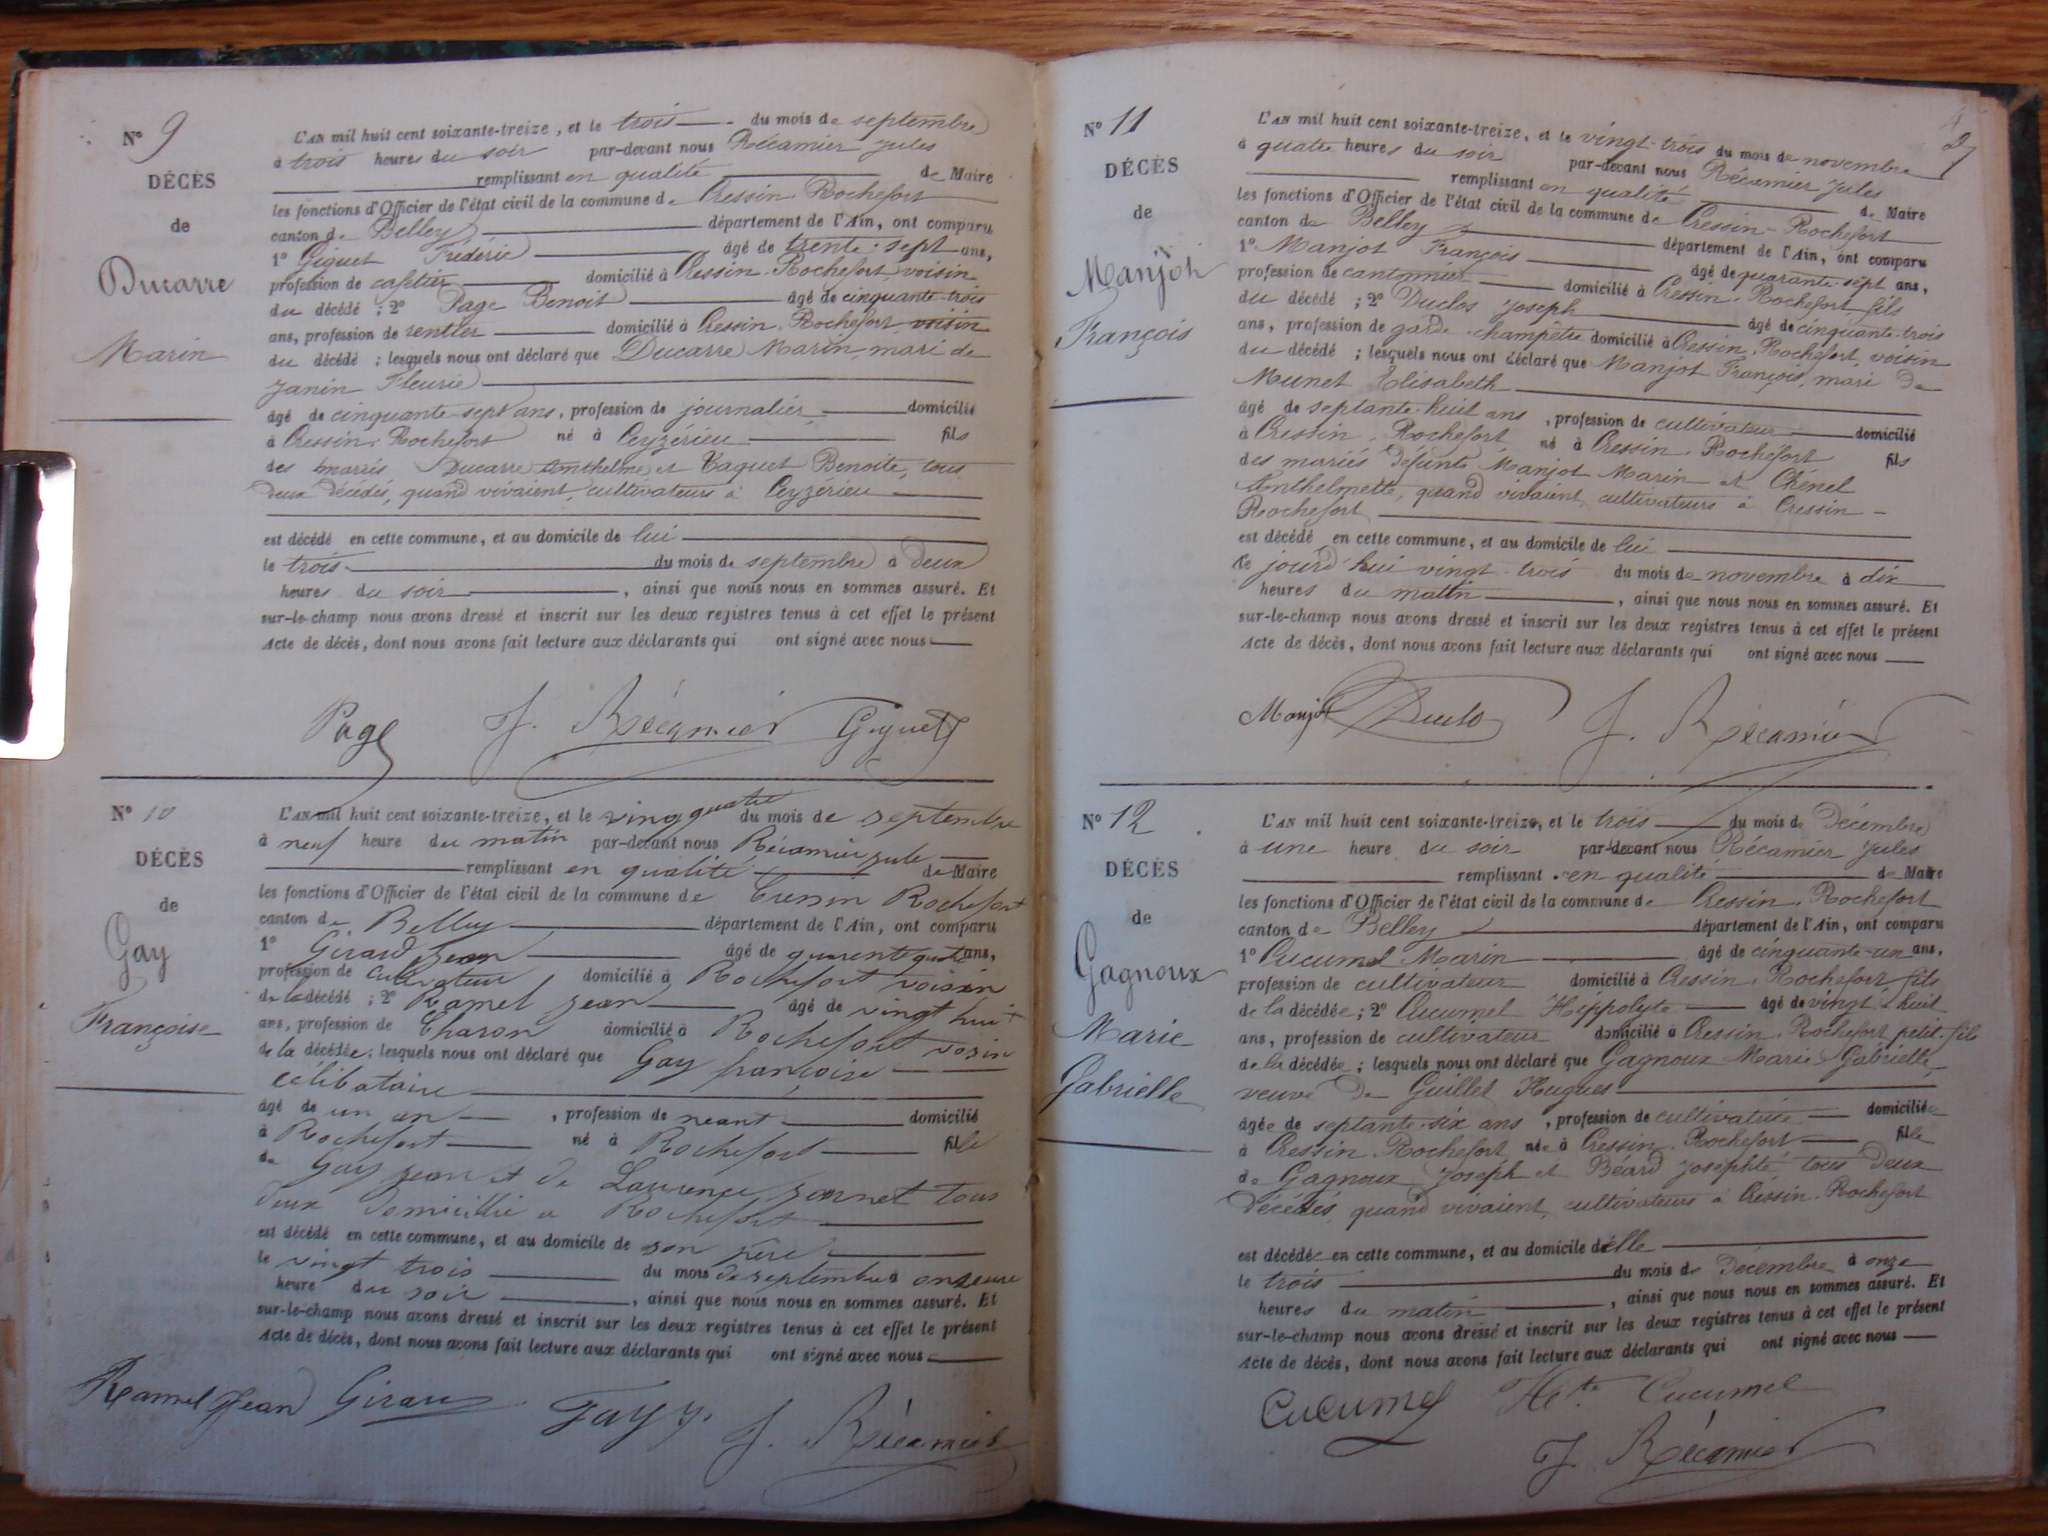 N° 9
DÉCÈS
de
Ducarre
Marin
L'AN mil huit cent soixante-treize, et le trois du mois de septembre
à trois heures du soir par-devant nous Récamier Jules
remplissant en qualité de Maire
les fonctions d'Officier de l'état civil de la commune de Cressin Rochefort
canton de Belley département de l'Ain, ont comparu
1° Giguet Frédéric âgé de trente-sept ans,
profession de cafetier domicilié à Cressin-Rochefort voisin
du décédé ; 2° Page Benoit âgé de cinquante-trois
ans, profession de rentier domicilié à Cressin-Rochefort voisin
du décédé ; lesquels nous ont déclaré que Ducarre Marin, mari de
Janin Fleurie
âgé de cinquante-sept ans, profession de journalier domicilié
à Cressin-Rochefort né à Ceyzérieu fils
des mariés Ducarre Anthelme et Vaquet Benoite, tous
deux décédés, quand vivaient, cultivateurs à Ceyzérieu
est décédé en cette commune, et au domicile de lui
le trois du mois de septembre à deux
heures du soir, ainsi que nous nous en sommes assuré. Et
sur-le-champ nous avons dressé et inscrit sur les deux registres tenus à cet effet le présent
Acte de décès, dont nous avons fait lecture aux déclarants qui ont signé avec nous
Page J. Récamier Giguet
N° 10
DÉCÈS
de
Gay
Françoise
L'AN mil huit cent soixante-treize, et le ving quatre du mois de septembre
à neuf heure du matin par-devant nous Récamier Jule
remplissant en qualité de Maire
les fonctions d'Officier de l'état civil de la commune de Cressin Rochefort
canton de Belley département de l'Ain, ont comparu
1° Girard Jean âgé de quarente quatre ans,
profession de cultivateur domicilié à Rochefort voisin
de la décédé ; 2° Ramel Jean âgé de vingt huit
ans, profession de Charon domicilié à Rochefort vosin
de la décédée ; lesquels nous ont déclaré que Gay françoise
célibataire
âgé de un an, profession de néant domicilié
à Rochefort né à Rochefort fille
de Gay Jean et de Laurence Jeannet tous
deux domicillié a Rochefort
est décédé en cette commune, et au domicile de son père
le vingt trois du mois de septembre à onzeure
heure du soir, ainsi que nous nous en sommes assuré. Et
sur-le-champ nous avons dressé et inscrit sur les deux registres tenus à cet effet le présent
Acte de décès, dont nous avons fait lecture aux déclarants qui ont signé avec nous
Ramel Jean Girard J. Récamier
N° 11
DÉCÈS
de
Manjot
François
L'AN mil huit cent soixante-treize, et le vingt-trois du mois de novembre
à quatre heures du soir par-devant nous Récamier Jules
remplissant en qualité de Maire
les fonctions d'Officier de l'état civil de la commune de Cressin-Rochefort
canton de Belley département de l'Ain, ont comparu
1° Manjot François âgé de quarante-sept ans,
profession de cantonnier domicilié à Cressin-Rochefort, fils
du décédé ; 2° Duclos Joseph âgé de cinquante-trois
ans, profession de garde-champêtre domicilié à Cressin-Rochefort, voisin
du décédé ; lesquels nous ont déclaré que Manjot François, mari de
Munet Elisabeth
âgé de septante-huit ans, profession de cultivateur domicilié
à Cressin-Rochefort né à Cressin-Rochefort fils
des mariés défunts Manjot Marin et Chénel
Anthelmette, quand vivaient, cultivateurs à Cressin-
Rochefort
est décédé en cette commune, et au domicile de lui
le jourd'hui vingt-trois du mois de novembre à dix
heures du matin, ainsi que nous nous en sommes assuré. Et
sur-le-champ nous avons dressé et inscrit sur les deux registres tenus à cet effet le présent
Acte de décès, dont nous avons fait lecture aux déclarants qui ont signé avec nous
Manjot Duclos J. Récamier
N° 12
DÉCÈS
de
Gagnoux
Marie
Gabrielle
L'AN mil huit cent soixante-treize, et le trois du mois de Décembre
à une heure du soir par-devant nous Récamier Jules
remplissant en qualité de Maire
les fonctions d'Officier de l'état civil de la commune de Cressin-Rochefort
canton de Belley département de l'Ain, ont comparu
1° Cucumel Marin âgé de cinquante-un ans,
profession de cultivateur domicilié à Cressin-Rochefort fils
de la décédée ; 2° Cucumel Hippolyte âgé de vingt-huit
ans, profession de cultivateur domicilié à Cressin-Rochefort petit-fils
de la décédée ; lesquels nous ont déclaré que Gagnoux Marie-Gabrielle,
veuve de Guillet Hugues
âgée de septante-six ans, profession de cultivatrice domiciliée
à Cressin-Rochefort née à Cressin-Rochefort fille
de Gagnoux Joseph et Béard Josephte tous deux
décédés, quand vivaient, cultivateurs à Cressin-Rochefort
est décédée en cette commune, et au domicile d'elle
le trois du mois de Décembre à onze
heures du matin, ainsi que nous nous en sommes assuré. Et
sur-le-champ nous avons dressé et inscrit sur les deux registres tenus à cet effet le présent
Acte de décès, dont nous avons fait lecture aux déclarants qui ont signé avec nous
Cucumel Hte Cucumel
J. Récamier